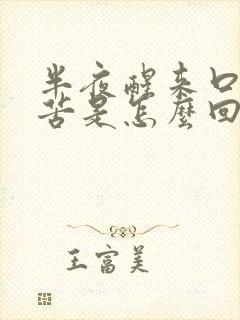 半夜醒来口
苦是怎麼回
王富美